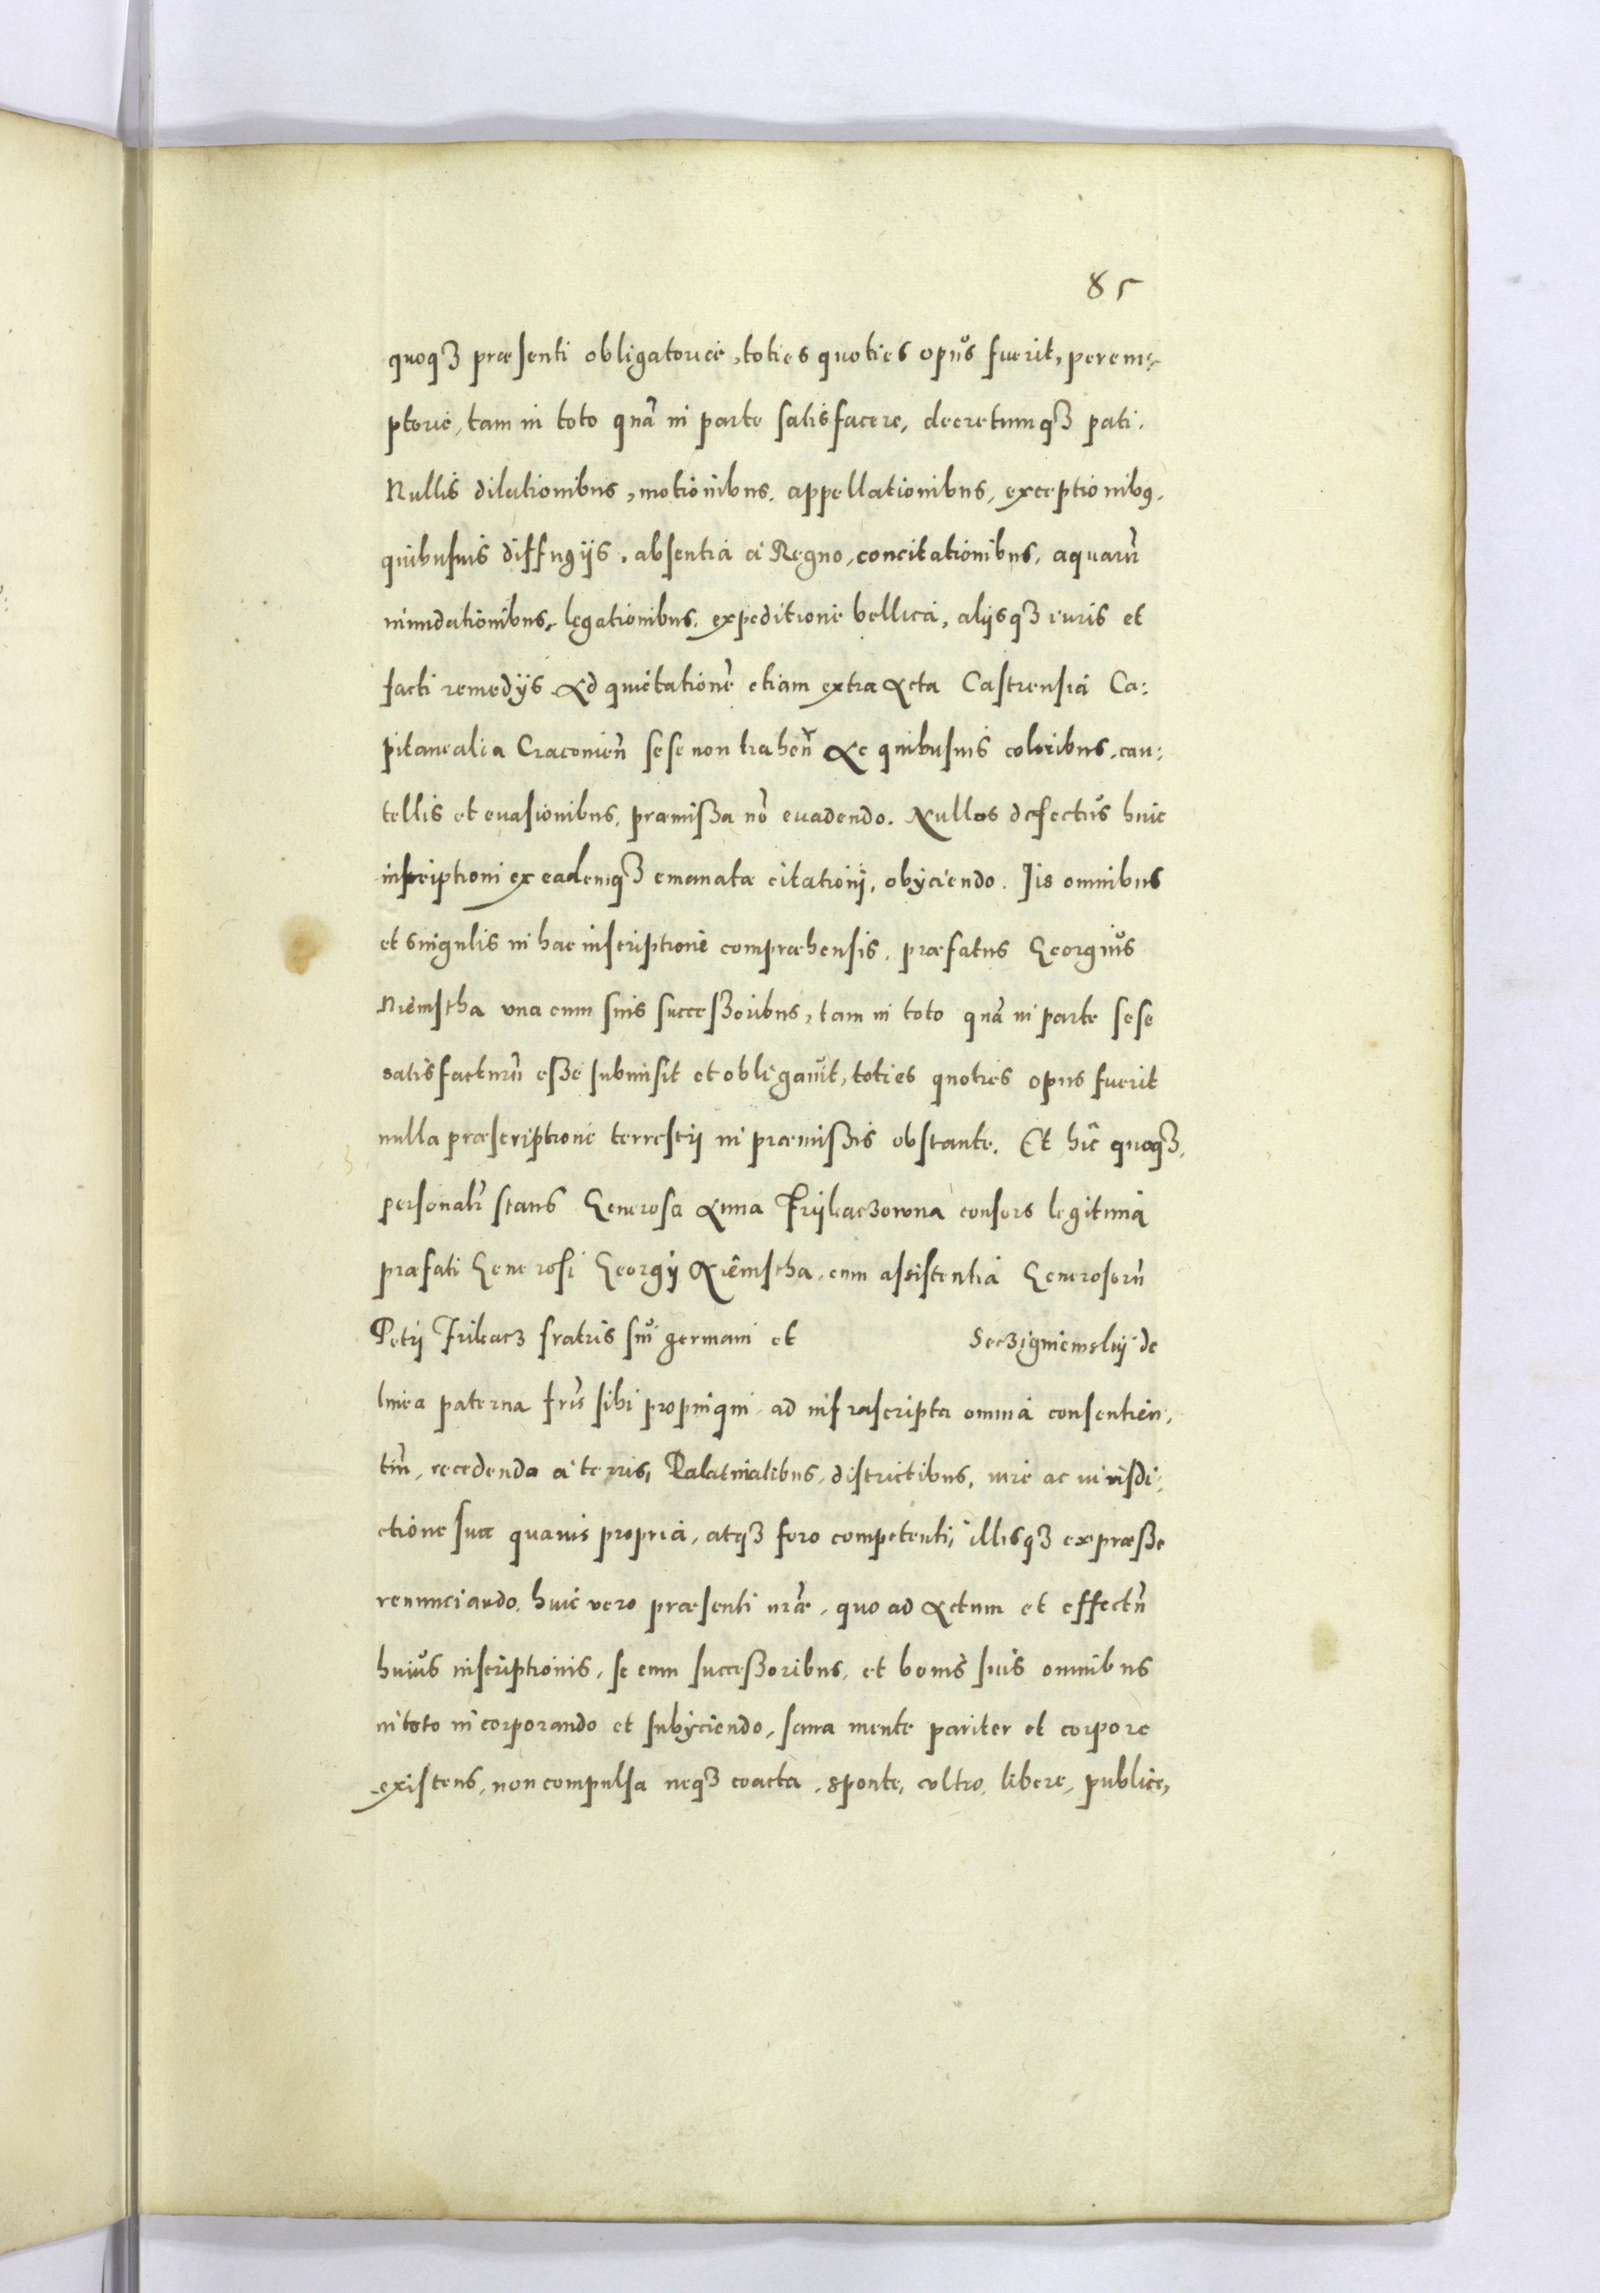 85
quoqꝫ præsenti obligatorie, toties quoties opus fuerit, perem-
ptorie, tam in toto quã in parte satisfacere, decretumqꝫ pati.
Nullis dilationibus, motionibus, appellationibus, exceptionibꝰ,
quibusuis diffugijs, absentia à Regno, concitationibus, aquarũ
inundationibus, legationibus, expeditione bellica, alijsqꝫ iuris et
facti remedijs Ad quietationẽ etiam extra Acta Castrensia Ca:
pitanealia Cracouieñ sese non traheñ Ac quibusuis coloribus, cau:
tellis et euasionibus, præmissa nõ euadendo. Nullos defectus huic
inscriptioni ex eademqꝫ emanatæ citationi, obijciendo. Iis omnibus
et singulis in hac inscriptione compræhensis, præfatus Georgius
Niemstha vna cum suis successoribus, tam in toto quã in parte sese
satisfacturũ esse submisit et obligauit, toties quoties opus fuerit
nulla præscriptione terrestri in præmissis obstante. Et hic quoqꝫ
personalr̃ stans Generosa Anna Frijkaczowna consors legitima
præfati Generosi Georgij Niemstha, cum assistentia Generosorũ
Petri Frikacz fratris sui germani et Seczigniewskij de
linea paterna fr̃is sibi propinqui ad infrascripta omnia consentien,
tiũ, recedendo à terris, Palatinatibus, districtibus, iure ac iurisdi:
ctione sua quauis propria, atqꝫ foro competenti, illisqꝫ expræsse
renunciando, huic vero præsenti nr̃æ, quo ad Actum et effectũ
huius inscriptionis, se cum successoribus, et bonis suis omnibus
in toto incorporando et subijciendo, sana mente pariter et corpore
existens, non compulsa neqꝫ coacta, sponte, vltro, libere, publice,